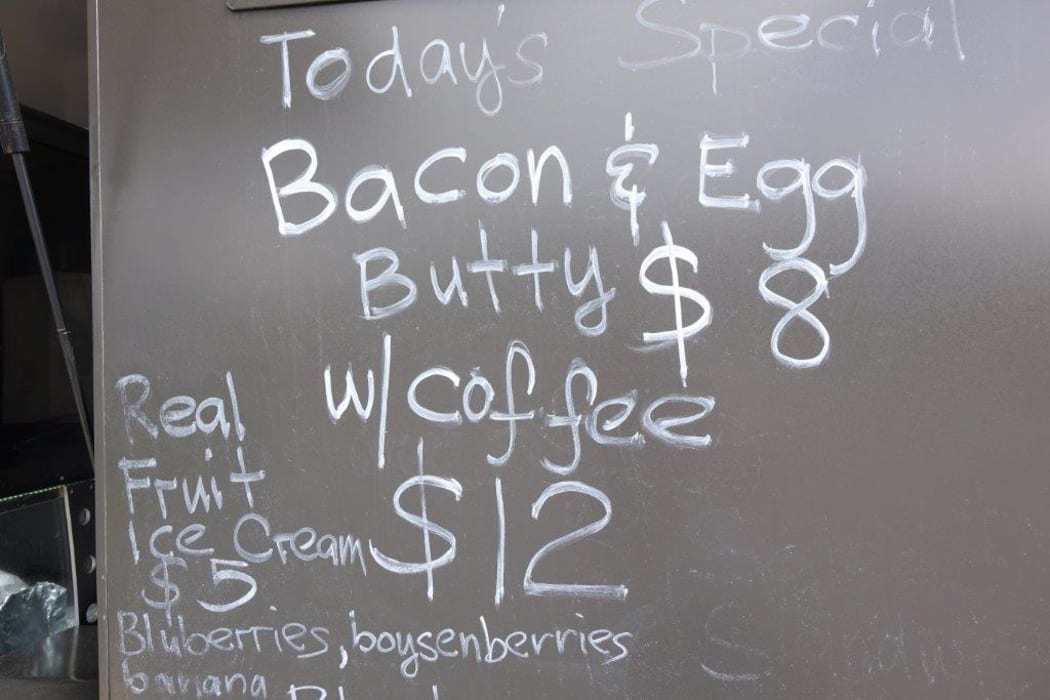 Today's Special
Bacon & Egg
Butty $8
w/coffee
$12
Real
Fruit
Ice Cream
$5
Bluberries, boysenberries
banana